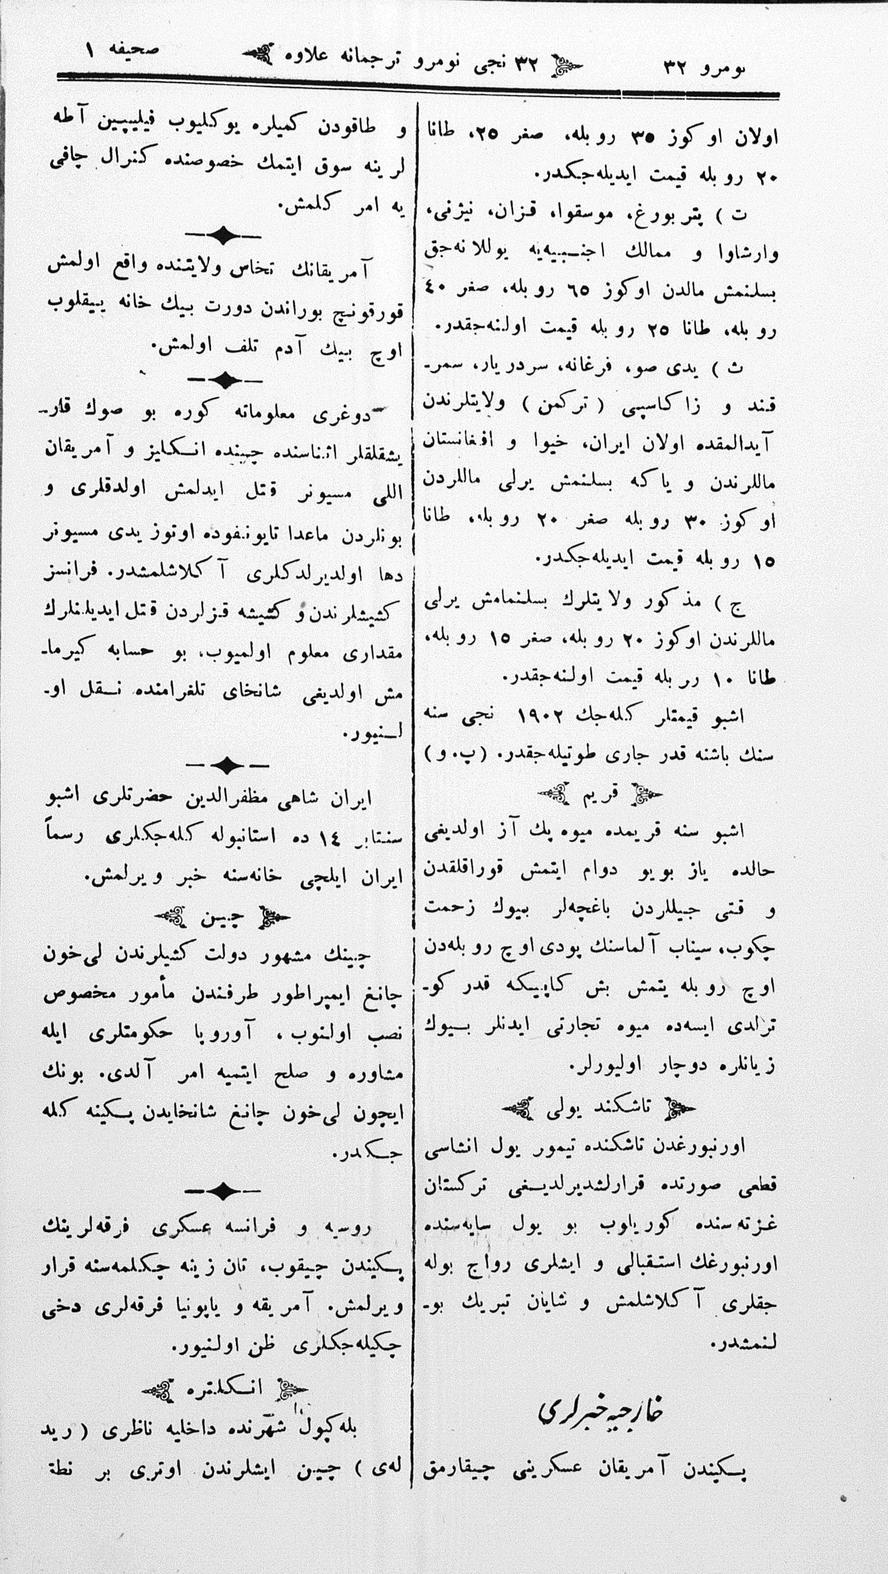 نومرو ٣٢
٣٢ نجی نومرو ترجمانه علاوه
صحیفه ١
اولان اوکوز ٣٥ روبله، صغر ٢٥، طانا
٢٠ روبله قیمت ایدیله‌جکدر.
ت ) پتربورغ، موسقوا، قزان، نیژنی،
وارشاوا و ممالك اجنبیه‌یه یوللانه‌جق
بسلنمش مالدن اوکوز ٦٥ روبله، صغر ٤٠
روبله، طانا ٢٥ روبله قیمت اولنه‌جقدر.
ث ) یدی صو، فرغانه، سردریار، سمر-
قند و زاکاسپی ( ترکمن ) ولایتلرندن
آیدالمقده اولان ایران، خیوا و افغانستان
ماللرندن و یاکه بسلنمش یرلی ماللردن
اوکوز ٣٠ روبله صغر ٢٠ روبله، طانا
١٥ روبله قیمت ایدیله‌جکدر.
ج ) مذکور ولایتلرك بسلنمامش یرلی
ماللرندن اوکوز ٢٠ روبله، صغر ١٥ روبله،
طانا ١٠ رربله قیمت اولنه‌جقدر.
اشبو قیمتلر کله‌جك ١٩٠٢ نجی سنه
سنك باشنه قدر جاری طوتیله‌جقدر. (پ. و)
قریم
اشبو سنه قریمده میوه پك آز اولدیغی
حالده یاز بویو دوام ایتمش قوراقلقدن
و قتی جیللردن باغچه‌لر بیوك زحمت
چکوب، سیناب آلماسنك پودی اوچ روبله‌دن
اوچ روبله یتمش بش کاپیکه قدر کو-
ترلدی ایسه‌ده میوه تجارتی ایدنلر بیوك
زیانلره دوچار اولیورلر.
تاشکند یولی
اورنبورغدن تاشکنده تیمور یول انشاسی
قطعی صورتده قرارلشدیرلدیغی ترکستان
غزته‌سنده کوریلوب بو یول سایه‌سنده
اورنبورغك استقبالی و ایشلری رواج بوله
جقلری آکلاشلمش و شایان تبریك بو-
لنمشدر.
خارجیه خبرلری
پکیندن آمریقان عسکرینی چیقارمق
و طاقودن کمیلره یوکلیوب فیلیپین آطه
لرینه سوق ایتمك خصوصنده کنرال چافی
یه امر کلمش.
آمریقانك تخاس ولایتنده واقع اولمش
قورقونچ بوراندن دورت بیك خانه ییقلوب
اوچ بیك آدم تلف اولمش.
دوغری معلوماته کوره بو صوك قار-
یشقلقلر اثناسنده چینده انکلیز و آمریقان
اللی مسیونر قتل ایدلمش اولدقلری و
بونلردن ماعدا تایونفوده اوتوز یدی مسیونر
دها اولدیرلدکلری آکلاشلمشدر. فرانسز
کشیشلرندن و کشیشه قزلردن قتل ایدیلنلرك
مقداری معلوم اولمیوب، بو حسابه کیرما-
مش اولدیغی شانخای تلغرامنده نقل او-
لنیور.
ایران شاهی مظفرالدین حضرتلری اشبو
سنتابر ١٤ ده استانبوله کله‌جکلری رسماً
ایران ایلچی خانه‌سنه خبر ویرلمش.
چین
چینك مشهور دولت کشیلرندن لی‌خون
چانغ ایمپراطور طرفندن مأمور مخصوص
نصب اولنوب، آوروپا حکومتلری ایله
مشاوره و صلح ایتمیه امر آلدی. بونك
ایچون لی‌خون چانغ شانخایدن پکینه کله
جکدر.
روسیه و فرانسه عسکری فرقه‌لرینك
پکیندن چیقوب، تان زینه چکلمه‌سنه قرار
ویرلمش. آمریقه و یاپونیا فرقه‌لری دخی
چکیله‌جکلری ظن اولنیور.
انکلتره
بله‌کپول شهرنده داخلیه ناظری ( رید
له‌ی ) چین ایشلرندن اوتری بر نطق